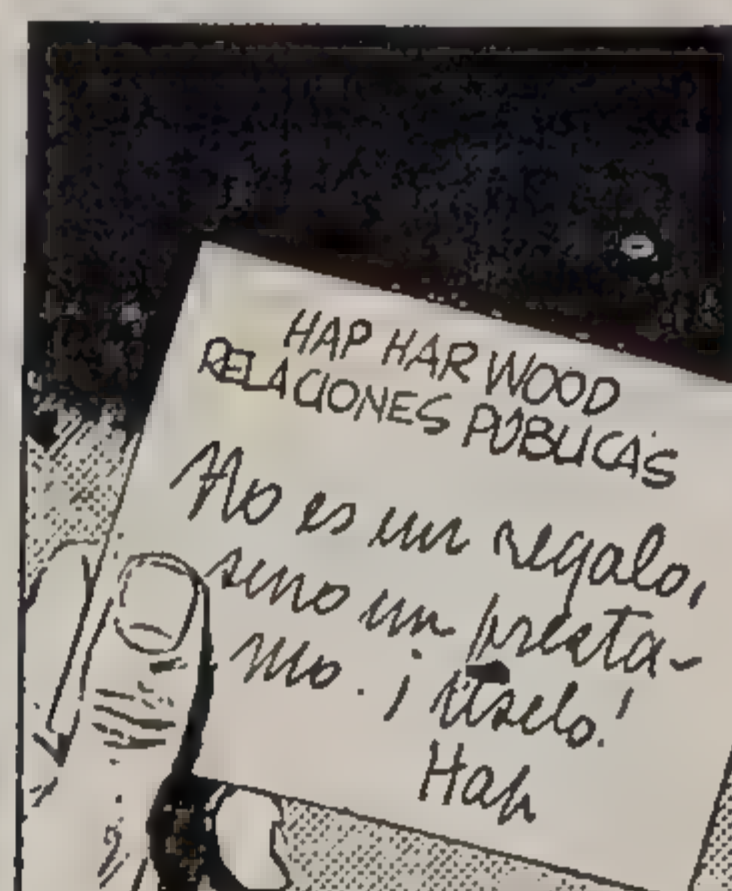 HAP HARWOOD
RELACIONES PÚBLICAS
No es un regalo,
sino un presta-
mo. ¡Uselo!
Hap